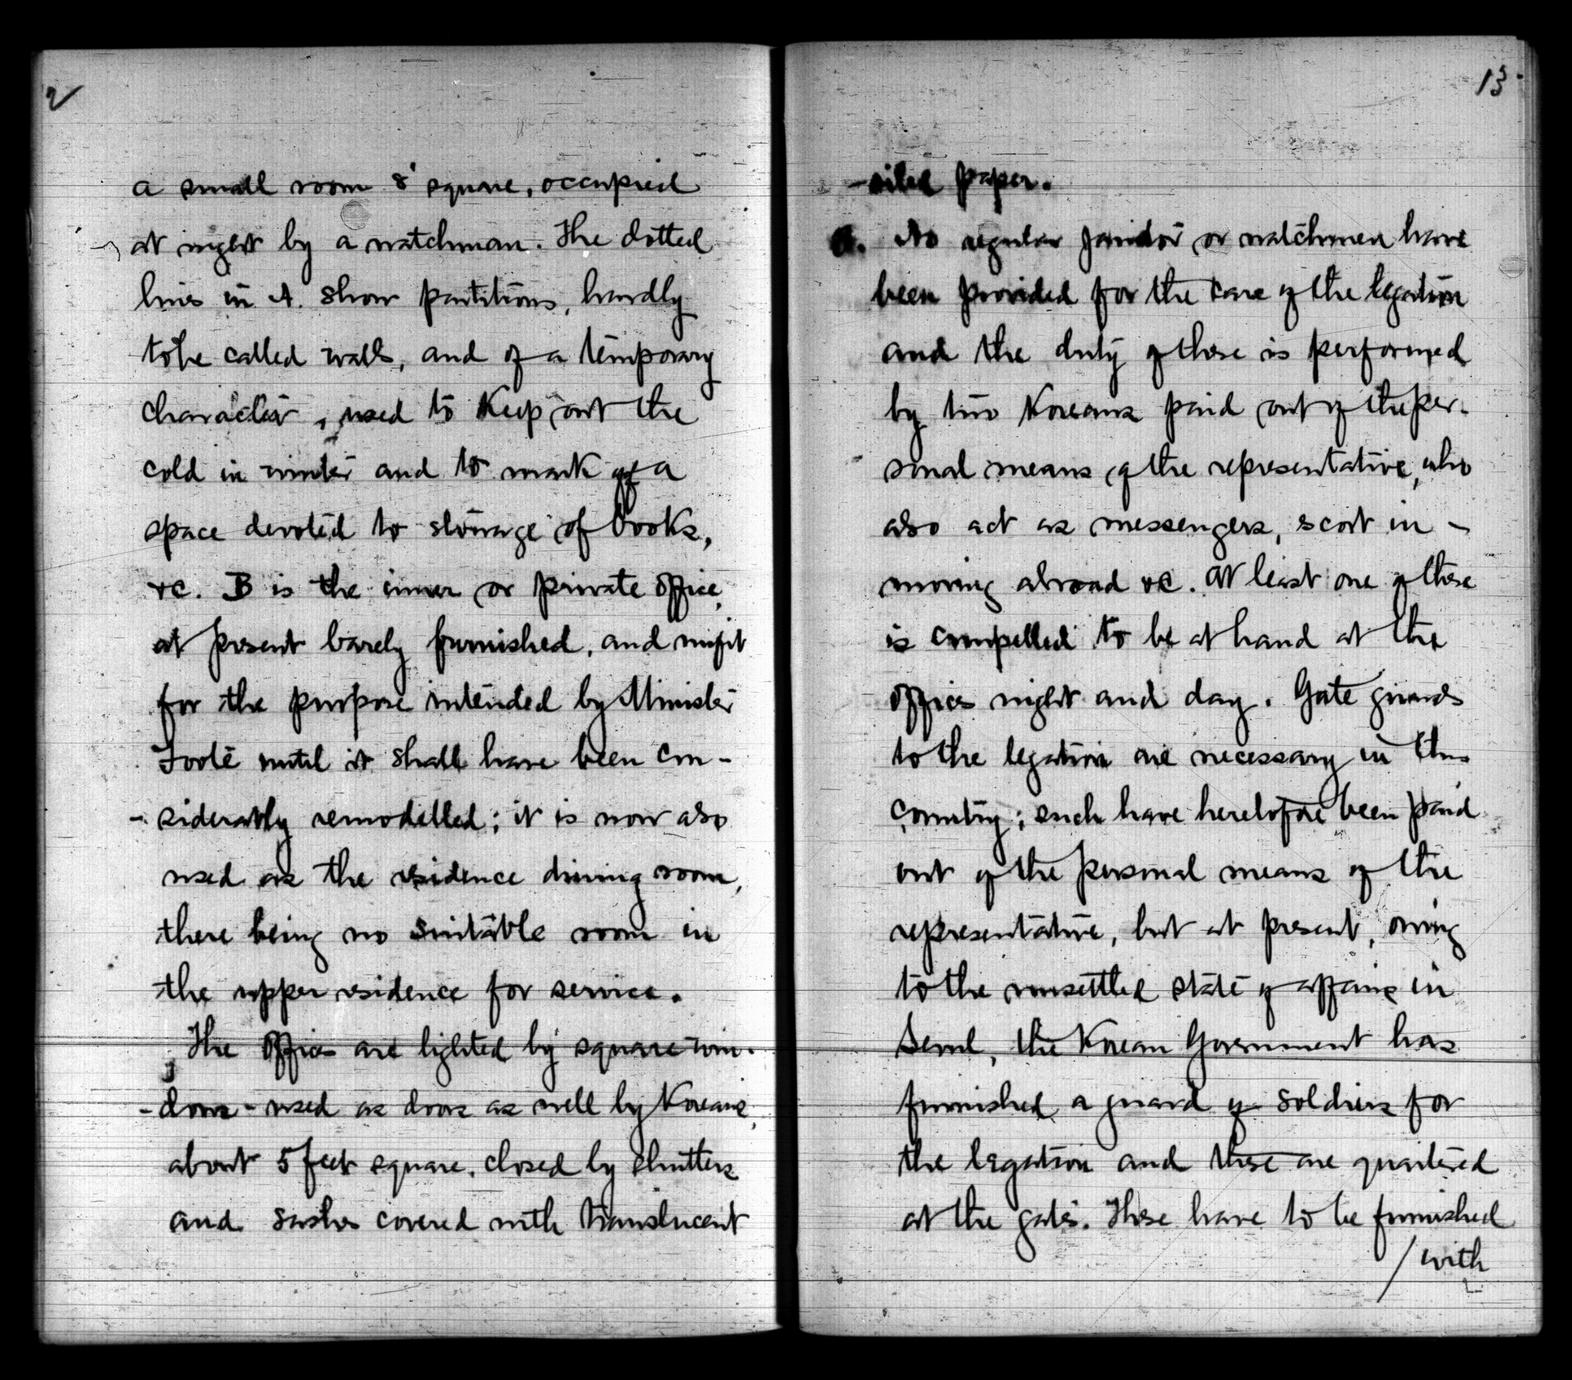 2
a small room 8' square, occupied
at night by a watchman. The dotted
lines in A. show partitions, hardly
to be called walls, and of a temporary
character, used to keep out the
cold in winter and to mark off a
space devoted to storage of books,
&c. B is the inner or private office,
at present barely furnished, and unfit
for the purpose intended by Minister
Foote until it shall have been con-
-siderably remodelled; it is now also
used as the residence dining room,
there being no suitable room in
the upper residence for service.
The offices are lighted by square win-
-dows - used as doors as well by Koreans,
about 5 feet square, closed by shutters
and sashes covered with translucent
13.
-oiled paper.
No regular janitor or watchmen have
been provided for the care of the legation
and the duty of these is performed
by two Koreans paid out of the per-
sonal means of the representative, who
also act as messengers, escort in -
moving abroad &c. At least one of these
is compelled to be at hand at the
offices night and day. Gate guards
to the legation are necessary in this
country; such have heretofore been paid
out of the personal means of the
representative, but at present, owing
to the unsettled state of affairs in
Seoul, the Korean Government has
furnished a guard of soldiers for
the legation and these are quartered
at the gates. These have to be furnished
/with